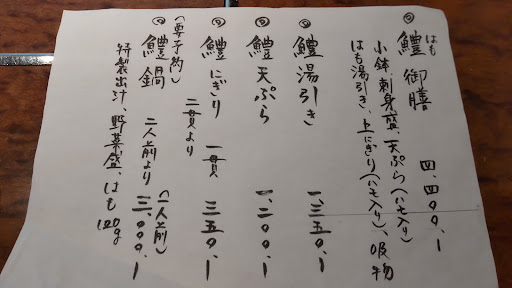 ◎ 鱧(はも) 御膳 四、四〇〇、ー
小鉢、刺身盛、天ぷら(ハモ入り)
はも湯引き、上にぎり(ハモ入り)、吸物
◎ 鱧 湯引き 一、三五〇、ー
◎ 鱧 天ぷら 一、二〇〇、ー
◎ 鱧 にぎり 一貫 三五〇、ー
二貫より
(要予約)
◎ 鱧鍋 二人前より (一人前) 三、〇〇〇、ー
特製出汁、野菜盛、はも120g